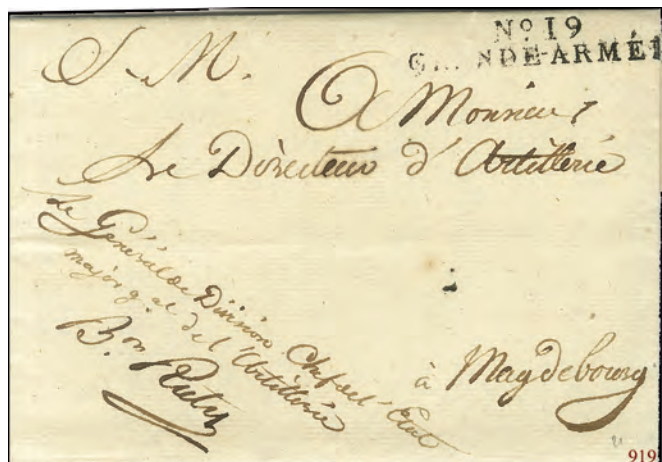 Nº 19
GRANDE-ARMÉE
S. M.
A Monsieur
Le Directeur d'Artillerie
Le Général de Division Chef de l'État
major g.al de l'Artillerie
B.on Ruty
à Magdebourg
919